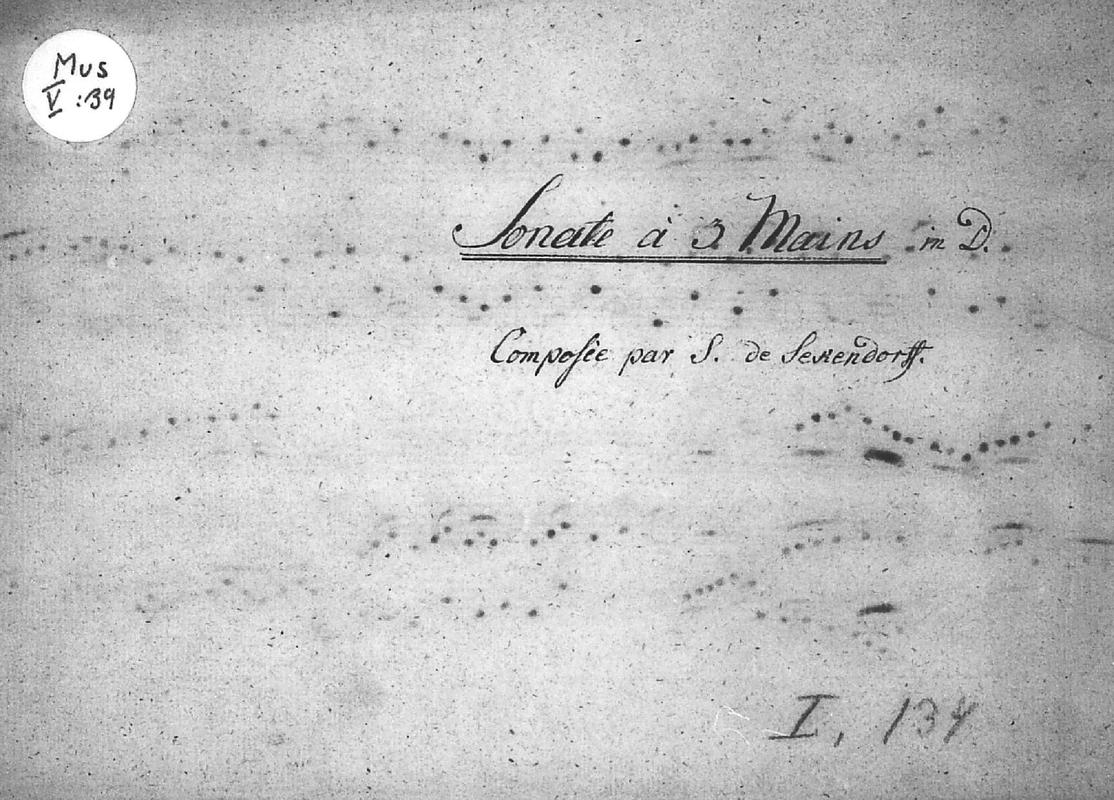 Mus
V : 139
Sonate à 3 Mains in D.
Composée par S. de Sekendorff.
I, 134